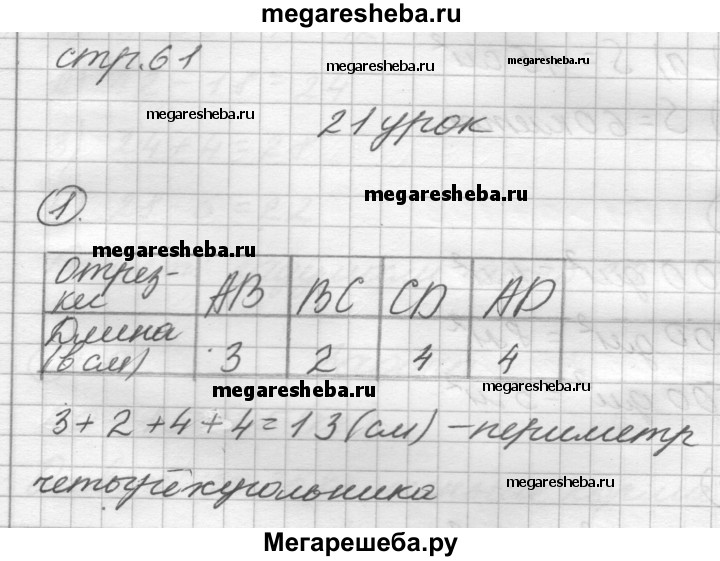 megaresheba.ru
стр.61
megaresheba.ru
megaresheba.ru
megaresheba.ru
21 урок
megaresheba.ru
1.
megaresheba.ru
Отрез- AB BC CD AD
кес
Длина
(в см) 3 2 4 4
megaresheba.ru
megaresheba.ru
3+2+4+4=13(см) –периметр
четырёхугольника
megaresheba.ru
Мегарешеба.ру